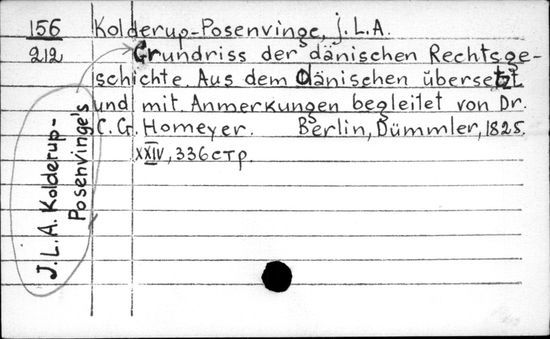 156 Kolderup-Posenvinge, J.L.A.
212 Grundriss der dänischen Rechtsge-
schichte. Aus dem Dänischen übersetzt
und mit Anmerkungen begleitet von Dr.
C. G. Homeyer. Berlin, Dümmler, 1825.
XXIV, 336 стр.
J. L. A. Kolderup-
Posenvinge's